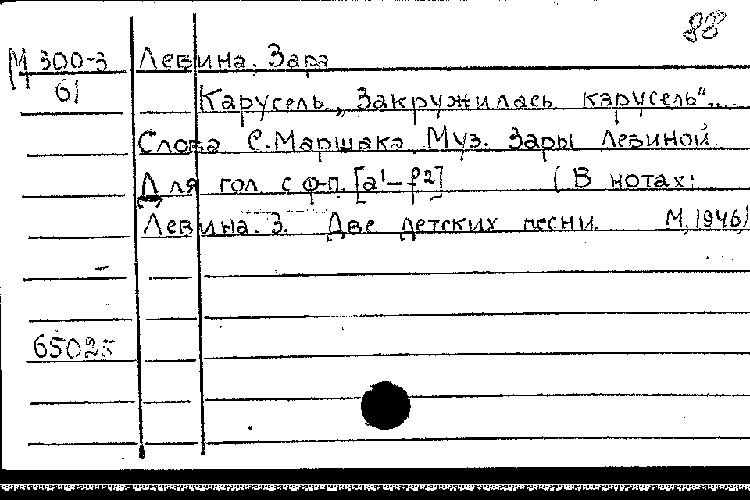 88
М 300-3 Левина, Зара
61
Карусель „Закружилась карусель"...
Слова С. Маршака Муз. Зары Левиной
Для гол. с ф-п. [a¹–f2] (В нотах:
Левина. З. Две детских песни. М, 1946)
65025